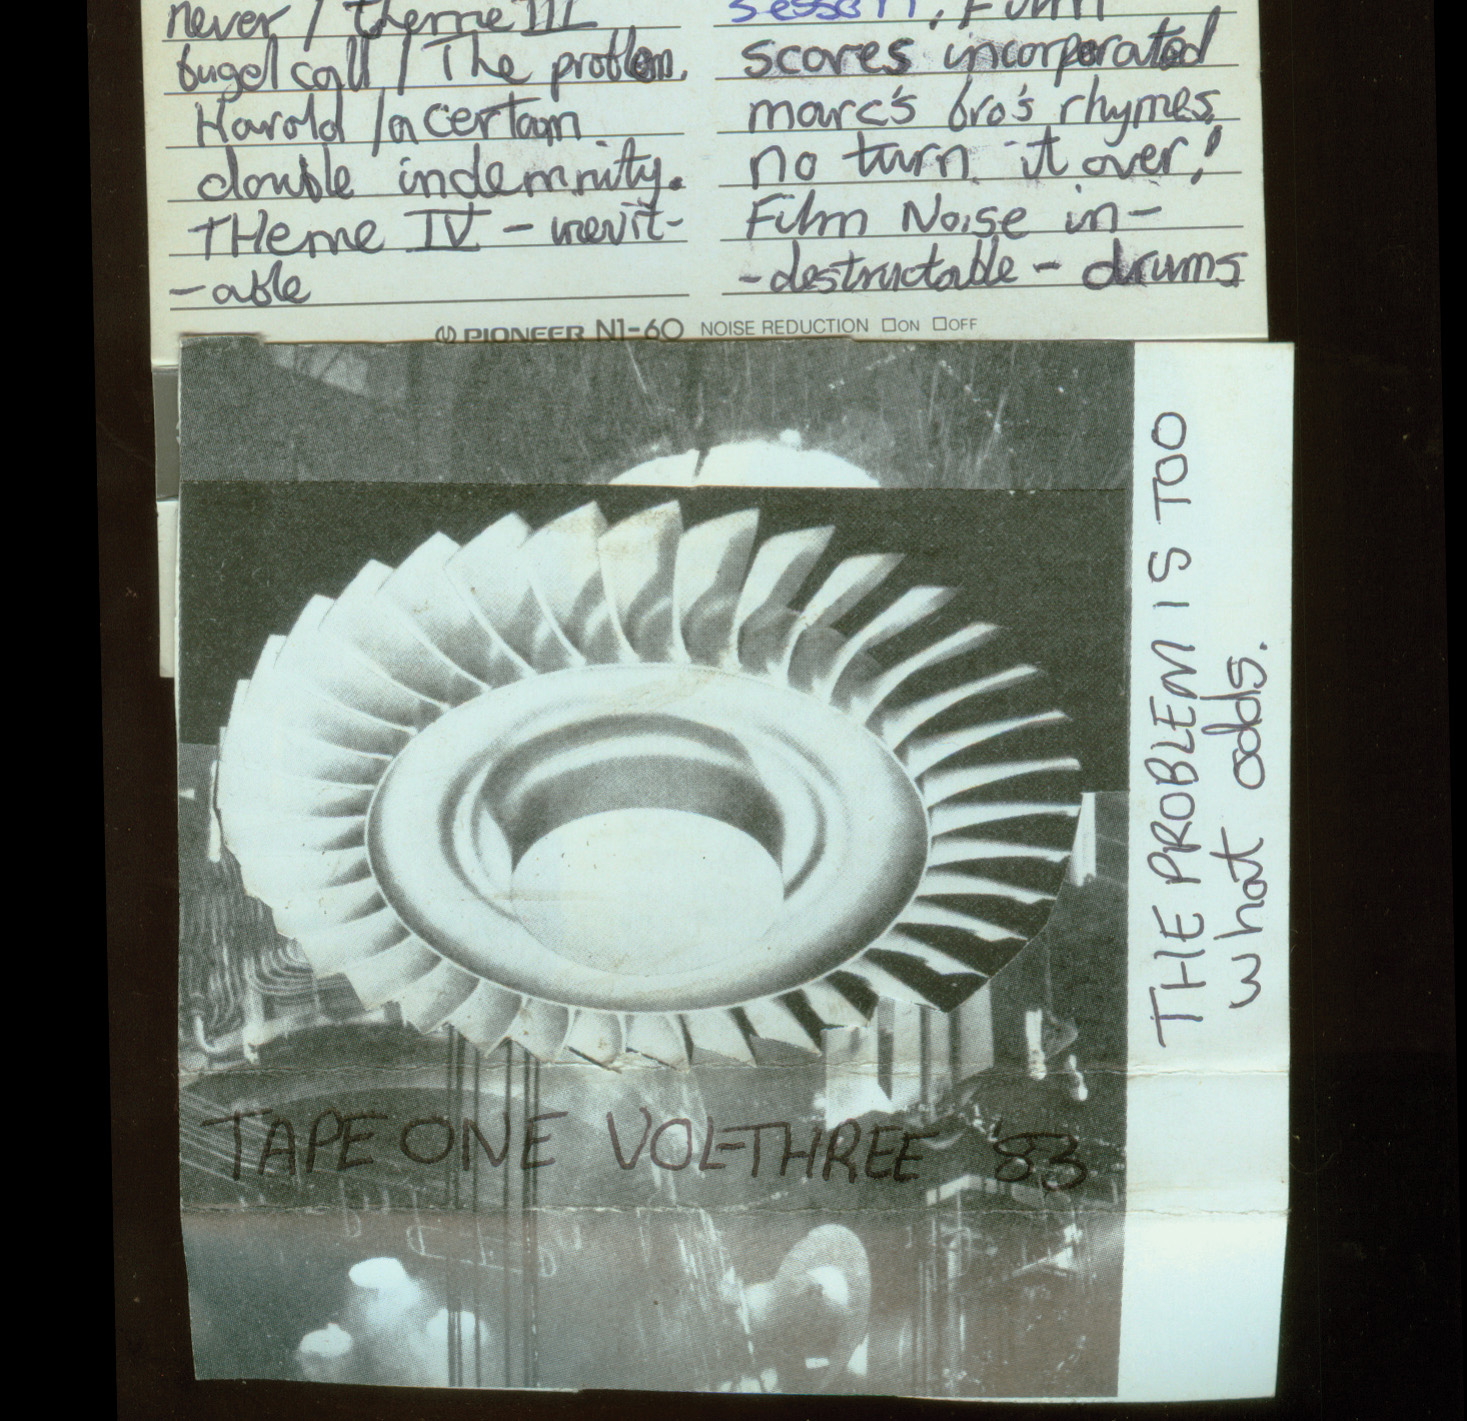 never / theme III
bugel call / The problem.
Harold / a certain
double indemnity.
THeme IV - inevit-
-able
session, Film
scores incorporated
marc's bro's rhymes,
no turn it over!
Film Noise in-
-destructable - drums
PIONEER N1-60 NOISE REDUCTION ON OFF
THE PROBLEM IS TOO
what odds.
TAPE ONE VOL-THREE '83